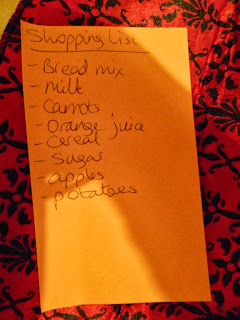 Shopping List
- Bread mix
- milk
- Carrots
- Orange juia
- Cereal
- Sugar
- apples
- potatoes